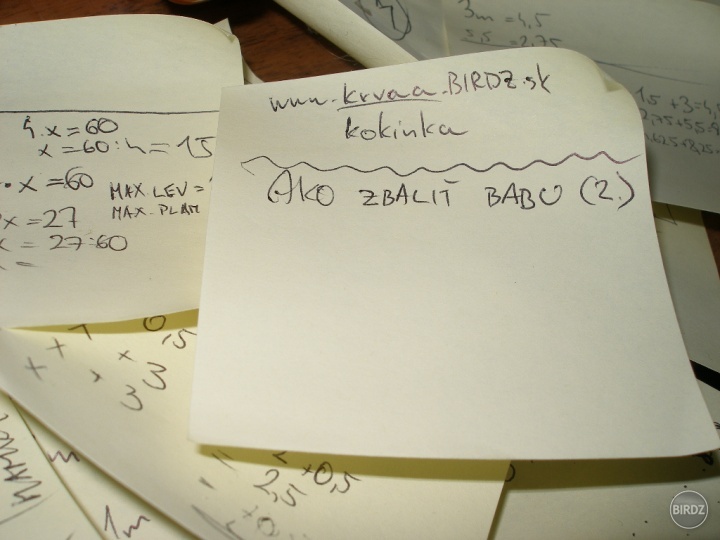 www.krvaa.BIRDZ.sk
kokinka
AKO ZBALIŤ BABU (2.)
4.x=60
x=60:4=15
x=60
MAX LEV =
MAX PLAM
x=27
x= 27:60
=
3m =4,5
5,5 =2,75
1,5 +3=4,
2,75+5,5=
x +
x x
3 3
2,5 x0,5
1m
BIRDZ